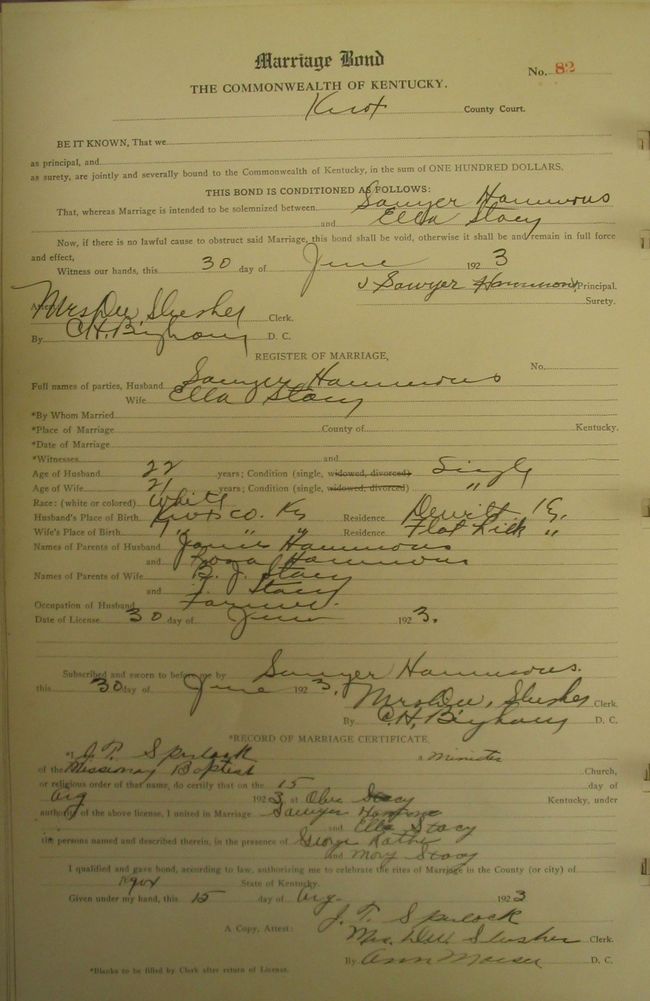 Marriage Bond
No. 82
THE COMMONWEALTH OF KENTUCKY.
Knox County Court.
BE IT KNOWN, That we
as principal, and
as surety, are jointly and severally bound to the Commonwealth of Kentucky, in the sum of ONE HUNDRED DOLLARS.
THIS BOND IS CONDITIONED AS FOLLOWS:
That, whereas Marriage is intended to be solemnized between Sawyer Hammons
and Ella Stacy
Now, if there is no lawful cause to obstruct said Marriage, this bond shall be void, otherwise it shall be and remain in full force
and effect,
Witness our hands, this 30 day of June 1923
Sawyer Hammons, Principal.
Surety.
Mrs Dee Slusher Clerk.
By C.H. Bingham D. C.
REGISTER OF MARRIAGE,
No.
Full names of parties, Husband Sawyer Hammons
Wife Ella Stacy
*By Whom Married
*Place of Marriage County of Kentucky.
*Date of Marriage
*Witnesses and
Age of Husband 22 years; Condition (single, widowed, divorced) Single
Age of Wife 21 years; Condition (single, widowed, divorced) "
Race: (white or colored) White
Husband's Place of Birth Knox Co. Ky Residence Dewitt Ky.
Wife's Place of Birth " " " Residence Flat Lick "
Names of Parents of Husband Hammons
and Hammons
Names of Parents of Wife B. J. Stacy
and Stacy
Occupation of Husband Farmer.
Date of License 30 day of June 1923.
Subscribed and sworn to before me by Sawyer Hammons.
this 30 day of June 1923. Mrs Dee Slusher Clerk.
By C.H. Bingham D. C.
*RECORD OF MARRIAGE CERTIFICATE
*I J. T. Spurlock a Minister
of the Missionary Baptist Church,
or religious order of that name, do certify that on the 15 day of
Aug 1923 at Stacy Kentucky, under
authority of the above license, I united in Marriage Sawyer Hammons
and Ella Stacy
the persons named and described therein, in the presence of George
and Mary Stacy
I qualified and gave bond, according to law, authorizing me to celebrate the rites of Marriage in the County (or city) of
Knox State of Kentucky.
Given under my hand, this 15 day of Aug. 1923
J. T. Spurlock
A Copy, Attest: Mrs. Dee Slusher Clerk.
By Ann D. C.
*Blanks to be filled by Clerk after return of License.